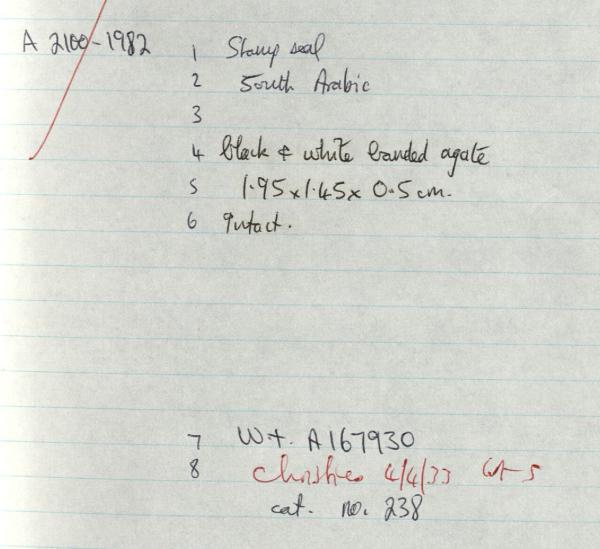 A 2100-1982 1 Stamp seal
2 South Arabic
3
4 black & white banded agate
5 1.95 x 1.45 x 0.5 cm.
6 Intact.
7 Wt. A167930
8 Christies 4/4/33 lot 5
cat. no. 238